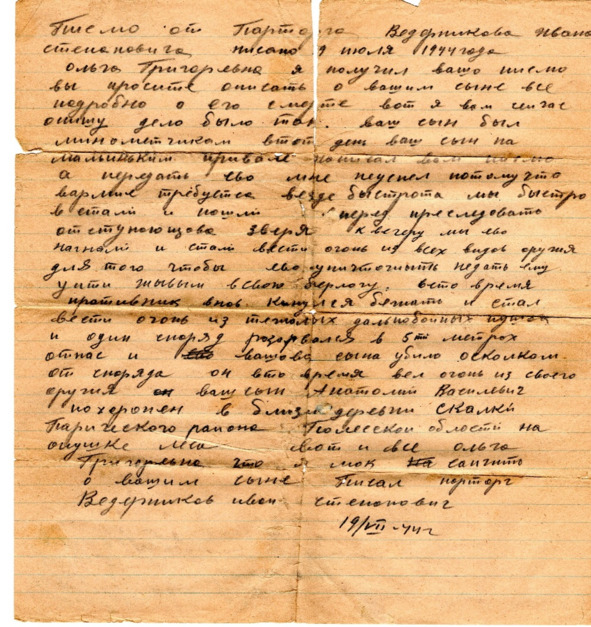 Писмо от Парторга Ведерникова Ивана
степановича писано 19 июля 1944 года
ольга Григоревна я получил вашо писмо
вы просите описать о вашим сыне все
подробно о его смерте вот я вам сейчас
опишу дело было так. ваш сын был
минометчиком втот ден ваш сын на
малиньким привале написал вам писмо
а передать ево мне неуспел потомучто
вармие требуется везде быстрота мы быстро
встали и пошли перед преследовать
отступоющова зверя к вечеру мы ево
нагнали и стали вести огонь из всех видов оружия
для того чтобы ево уничтожить недать ему
уйти живым в свою берлогу. вето время
противник внов кинулся бежать и стал
вести огонь из тежолых дальнобойных пушок
и один сноряд розорвался в 5ти метрох
отнас и вашова сына убило осколком
от снорядa он вто время вел огонь из своего
оружия ваш сын Анатолий Василевич
похоронен в близи деревни Скалки
Паричского района Полеской области на
опушке леса вот и все ольга
Григорьевна что я мок
о вашим сыне Писал парторг
Ведерников иван степонович
19/VII-44г